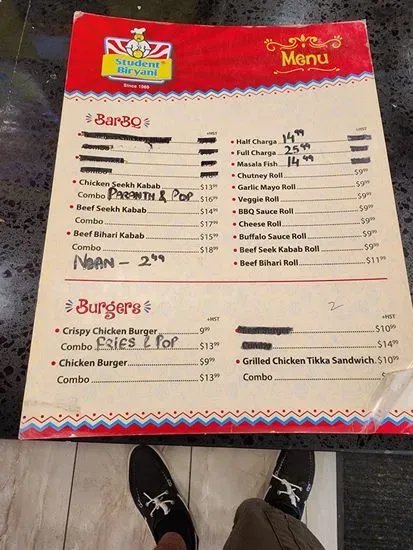 Student
Biryani
Since 1969
Menu
BarBQ
+HST
Chicken Seekh Kabab $13⁹⁹
Combo PARANTH & POP $16⁹⁹
Beef Seekh Kabab $14⁹⁹
Combo $17⁹⁹
Beef Bihari Kabab $15⁹⁹
Combo $18⁹⁹
NAAN - 2⁴⁹
+HST
Half Charga 14⁹⁹
Full Charga 25⁹⁹
Masala Fish 14⁴⁹
Chutney Roll $9⁹⁹
Garlic Mayo Roll $9⁹⁹
Veggie Roll $9⁹⁹
BBQ Sauce Roll $9⁹⁹
Cheese Roll $9⁹⁹
Buffalo Sauce Roll $9⁹⁹
Beef Seek Kabab Roll $9⁹⁹
Beef Bihari Roll $11⁹⁹
Burgers
+HST
Crispy Chicken Burger 9⁹⁹
Combo FRIES & POP $13⁹⁹
Chicken Burger $9⁹⁹
Combo $13⁹⁹
2
+HST
$10⁹⁹
$14⁹⁹
Grilled Chicken Tikka Sandwich. $10⁹⁹
Combo